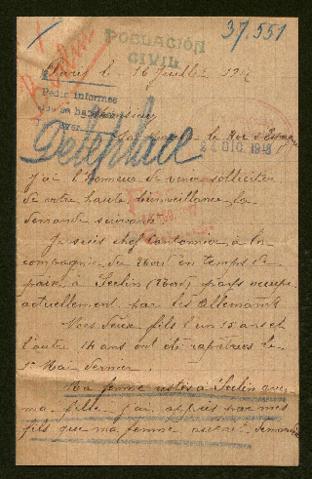 37.551
POBLACIÓN
CIVIL
Paris le 16 Juillet 191
Pedir informes
Monsieur
le Roi d'Espagne
Deleplace
24 DIC. 1918
j'ai l'honneur de venir solliciter
de votre haute bienveillance la
demande suivante
Je suis chef cantonnier à la
compagnie du Nord en temps de
paix à Seclin (Nord) pays occupé
actuellement par les Allemands
Mes deux fils l'un 15 ans et
l'autre 14 ans ont été rapatriés le
1er Mai dernier.
Ma femme restée à Seclin avec
ma fille j'ai appris par mes
fils que ma femme avait demandé